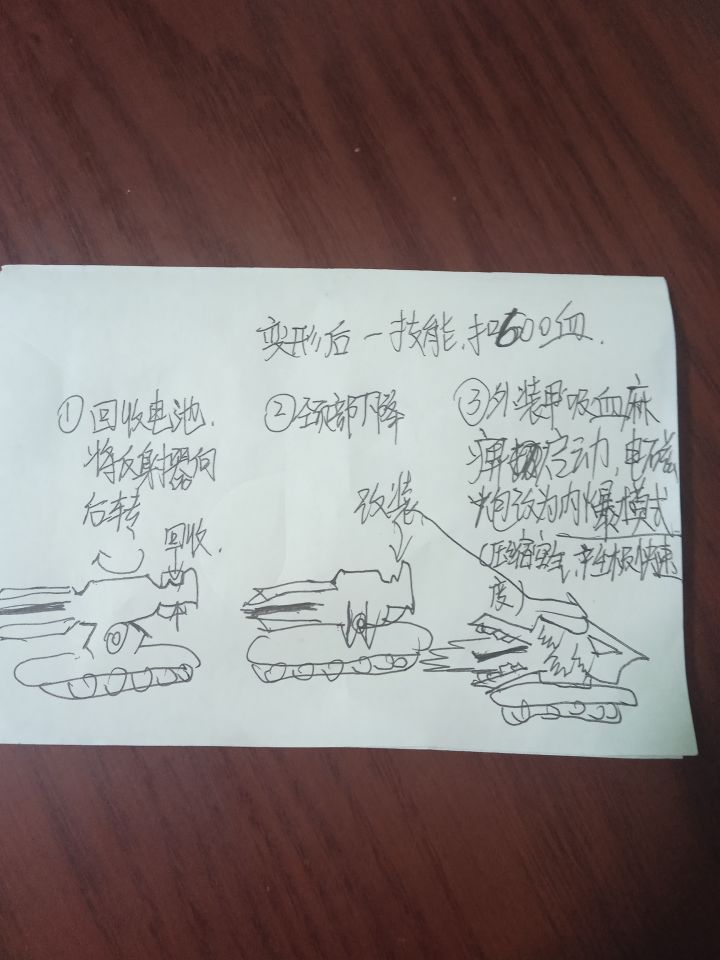 变形后一技能,扣600血.
①回收电池.
将反射器向
后转
回收.
②颈部下降
改装
③外装甲吸血麻
痹 启动,电磁
炮改为内爆模式
(压缩空气,产生极快速
度)